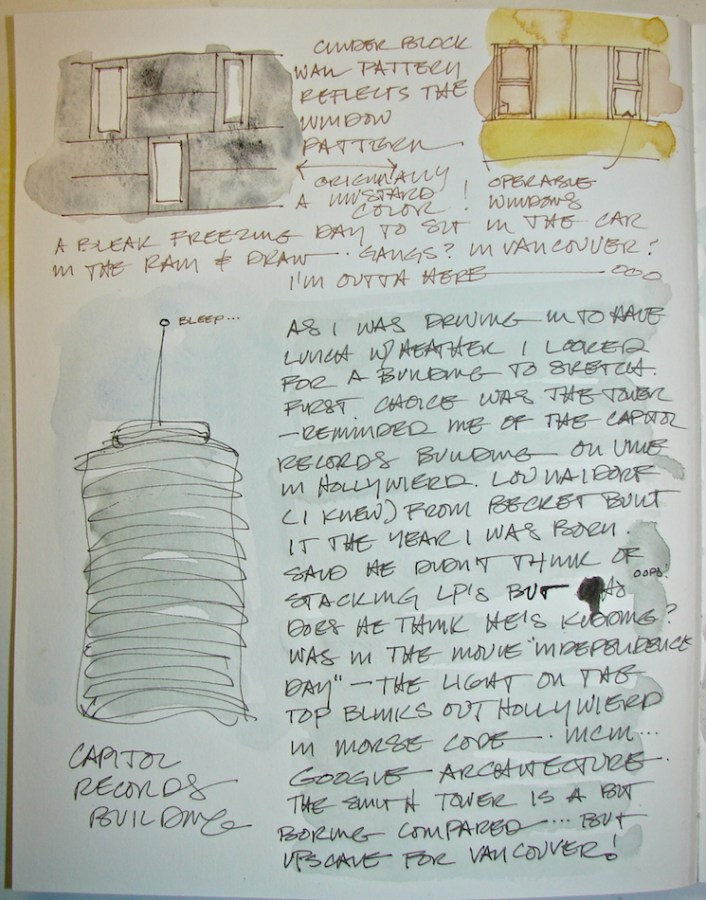 CINDER BLOCK
WALL PATTERN
REFLECTS THE
WINDOW
PATTERN
ORIGINALLY
A MUSTARD
COLOR!
OPERABLE
WINDOWS
A BLEAK FREEZING DAY TO SIT IN THE CAR
IN THE RAIN & DRAW... GANGS? IN VANCOUVER!
I'M OUTTA HERE
BLEEP...
AS I WAS DRIVING IN TO HAVE
LUNCH W/HEATHER I LOOKED
FOR A BUILDING TO SKETCH.
FIRST CHOICE WAS THE TOWER
- REMINDED ME OF THE CAPITOL
RECORDS BUILDING ON VINE
IN HOLLYWIERD. LOU NAIDORF
(I KNEW) FROM BECKET BUILT
IT THE YEAR I WAS BORN.
SAID HE DIDN'T THINK OF
OOPS!
STACKING LP'S BUT
DOES HE THINK HE'S KIDDING?
WAS IN THE MOVIE "INDEPENDENCE
DAY" - THE LIGHT ON THE
TOP BLINKS OUT HOLLYWIERD
IN MORSE CODE... MCM...
GOOGIE ARCHITECTURE.
THE SMITH TOWER IS A BIT
BORING COMPARED... BUT
UPSCALE FOR VANCOUVER!
CAPITOL
RECORDS
BUILDING